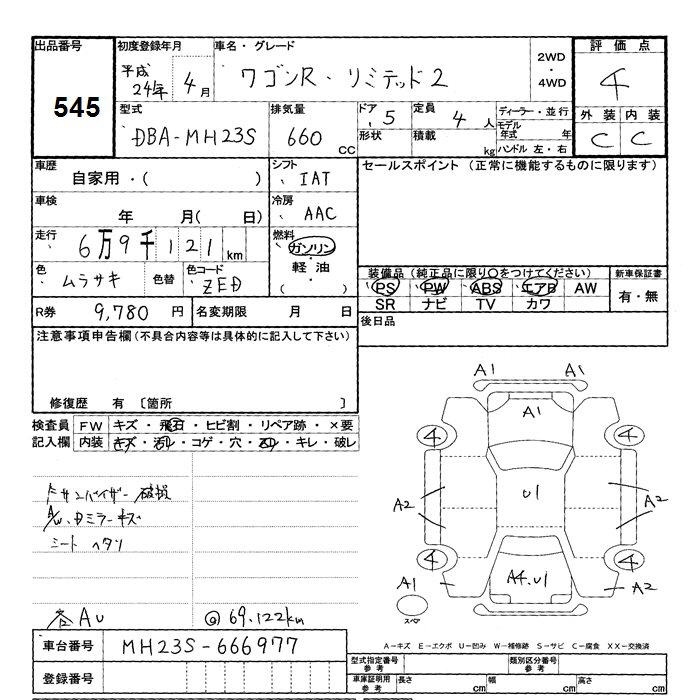 出品番号 初度登録年月 車名・グレード 評価点
545
平成24年 4月 ワゴンR・リミテッド2 2WD・4WD 4
型式 排気量 ドア 5 定員 4人 ディーラー・並行 外装 内装
DBA-MH23S 660 CC 形状 積載 kg モデル年式 年 C C
ハンドル 左・右
車歴 シフト セールスポイント (正常に機能するものに限ります)
自家用・( ) IAT
車検 冷房
年 月( 日) AAC
走行 6万9千121km 燃料 ガソリン・軽油・( )
装備品(純正品に限り○をつけてください) 新車保証書
色 ムラサキ 色替 色コード ZED PS PW ABS エアB AW 有・無
SR ナビ TV カワ
R券 9,780円 名変期限 月 日 後日品
注意事項申告欄(不具合内容等は具体的に記入して下さい)
修復歴 有 〔箇所 〕
検査員記入欄 FW キズ・飛石・ヒビ割・リペア跡・×要
内装 キズ・汚レ・コゲ・穴・・キレ・破レ
サンバイザー 破損
A/W、Dミラーキズ
シート ヘタリ
AU @69,122km
車台番号 MH23S-666977
登録番号
A1 A1
A1
4 4
U1
A2 A2
4 4
A1 A4.U1 A2
スペア
A-キズ E-エクボ U-凹み W-補修跡 S-サビ C-腐食 XX-交換済
型式指定番号 参考 類別区分番号 参考
車庫証明用 参考 長さ cm 幅 cm 高さ cm